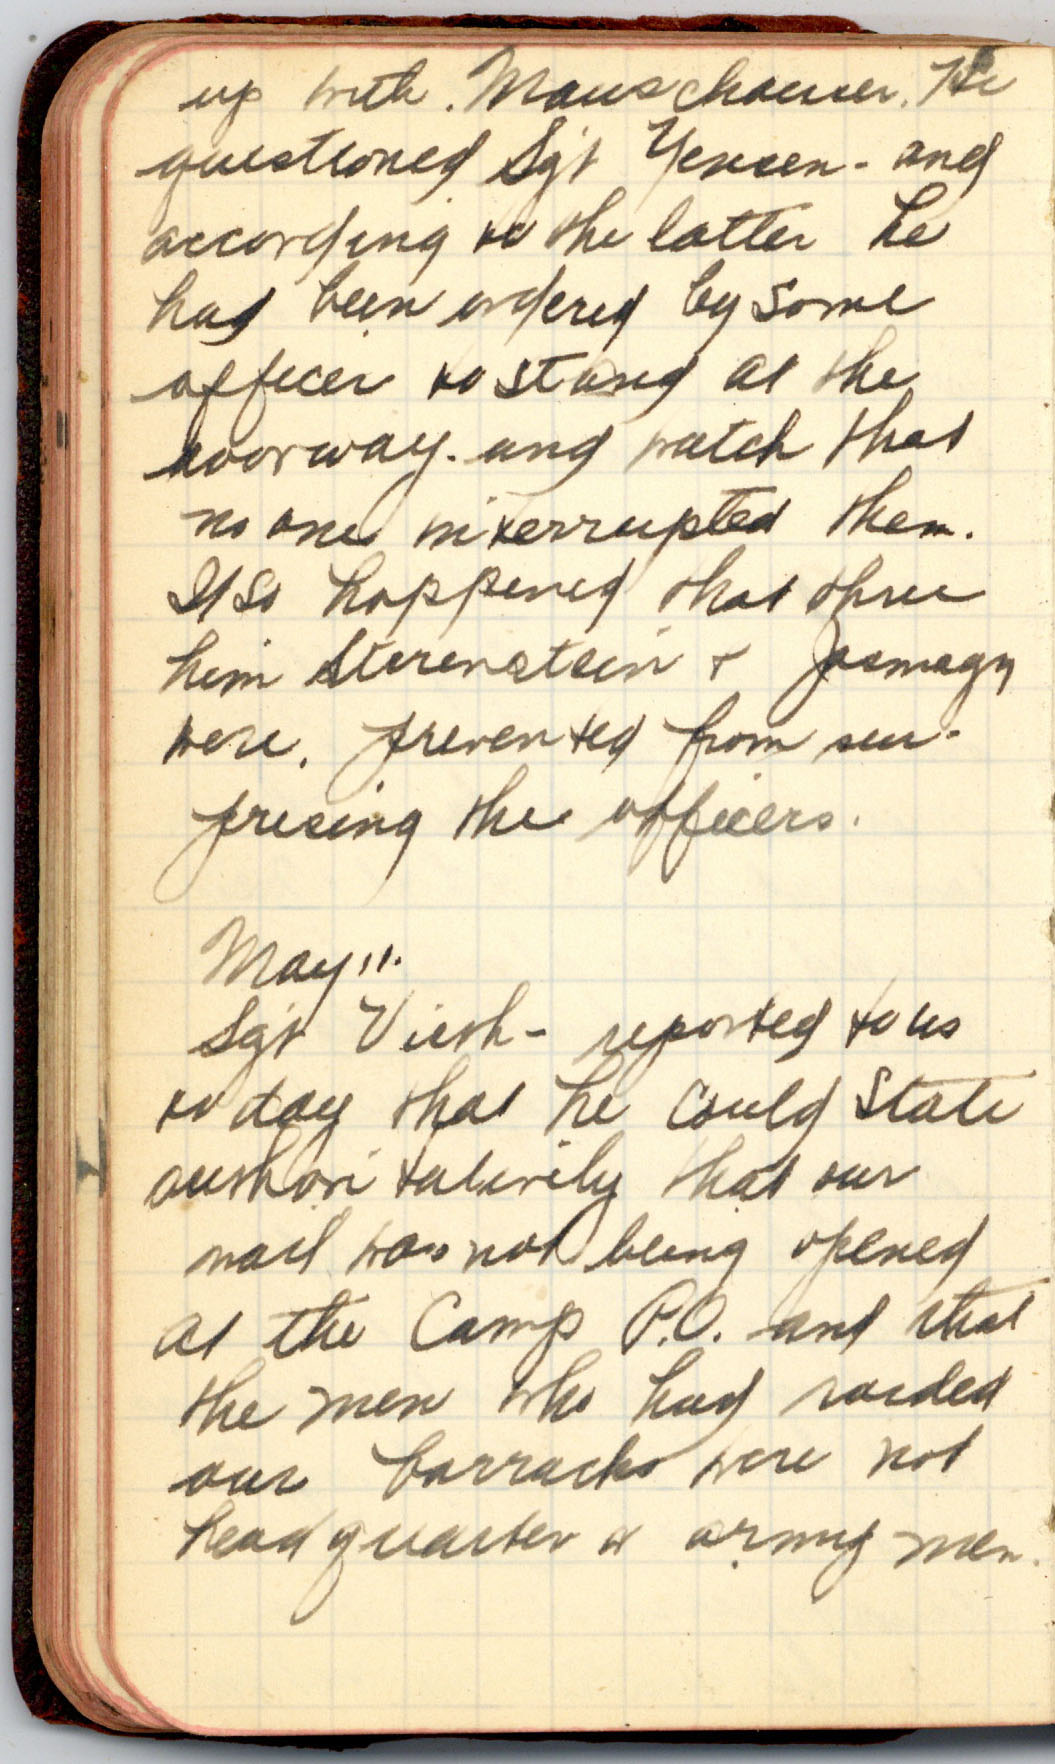 up with. Mauschauser. He
questioned Sgt Yensen - and
according to the latter he
had been ordered by some
officer to stand at the
doorway. and watch that
no one interrupted them.
It so happened that thru
him Sterenstein &
were. prevented from sur-
prising the officers.
May 11.
Sgt Vieth - reported to us
to day that he could state
authoritatively that our
mail was not being opened
at the Camp P.O. and that
the men who had raided
our barracks were not
headquarter army men.